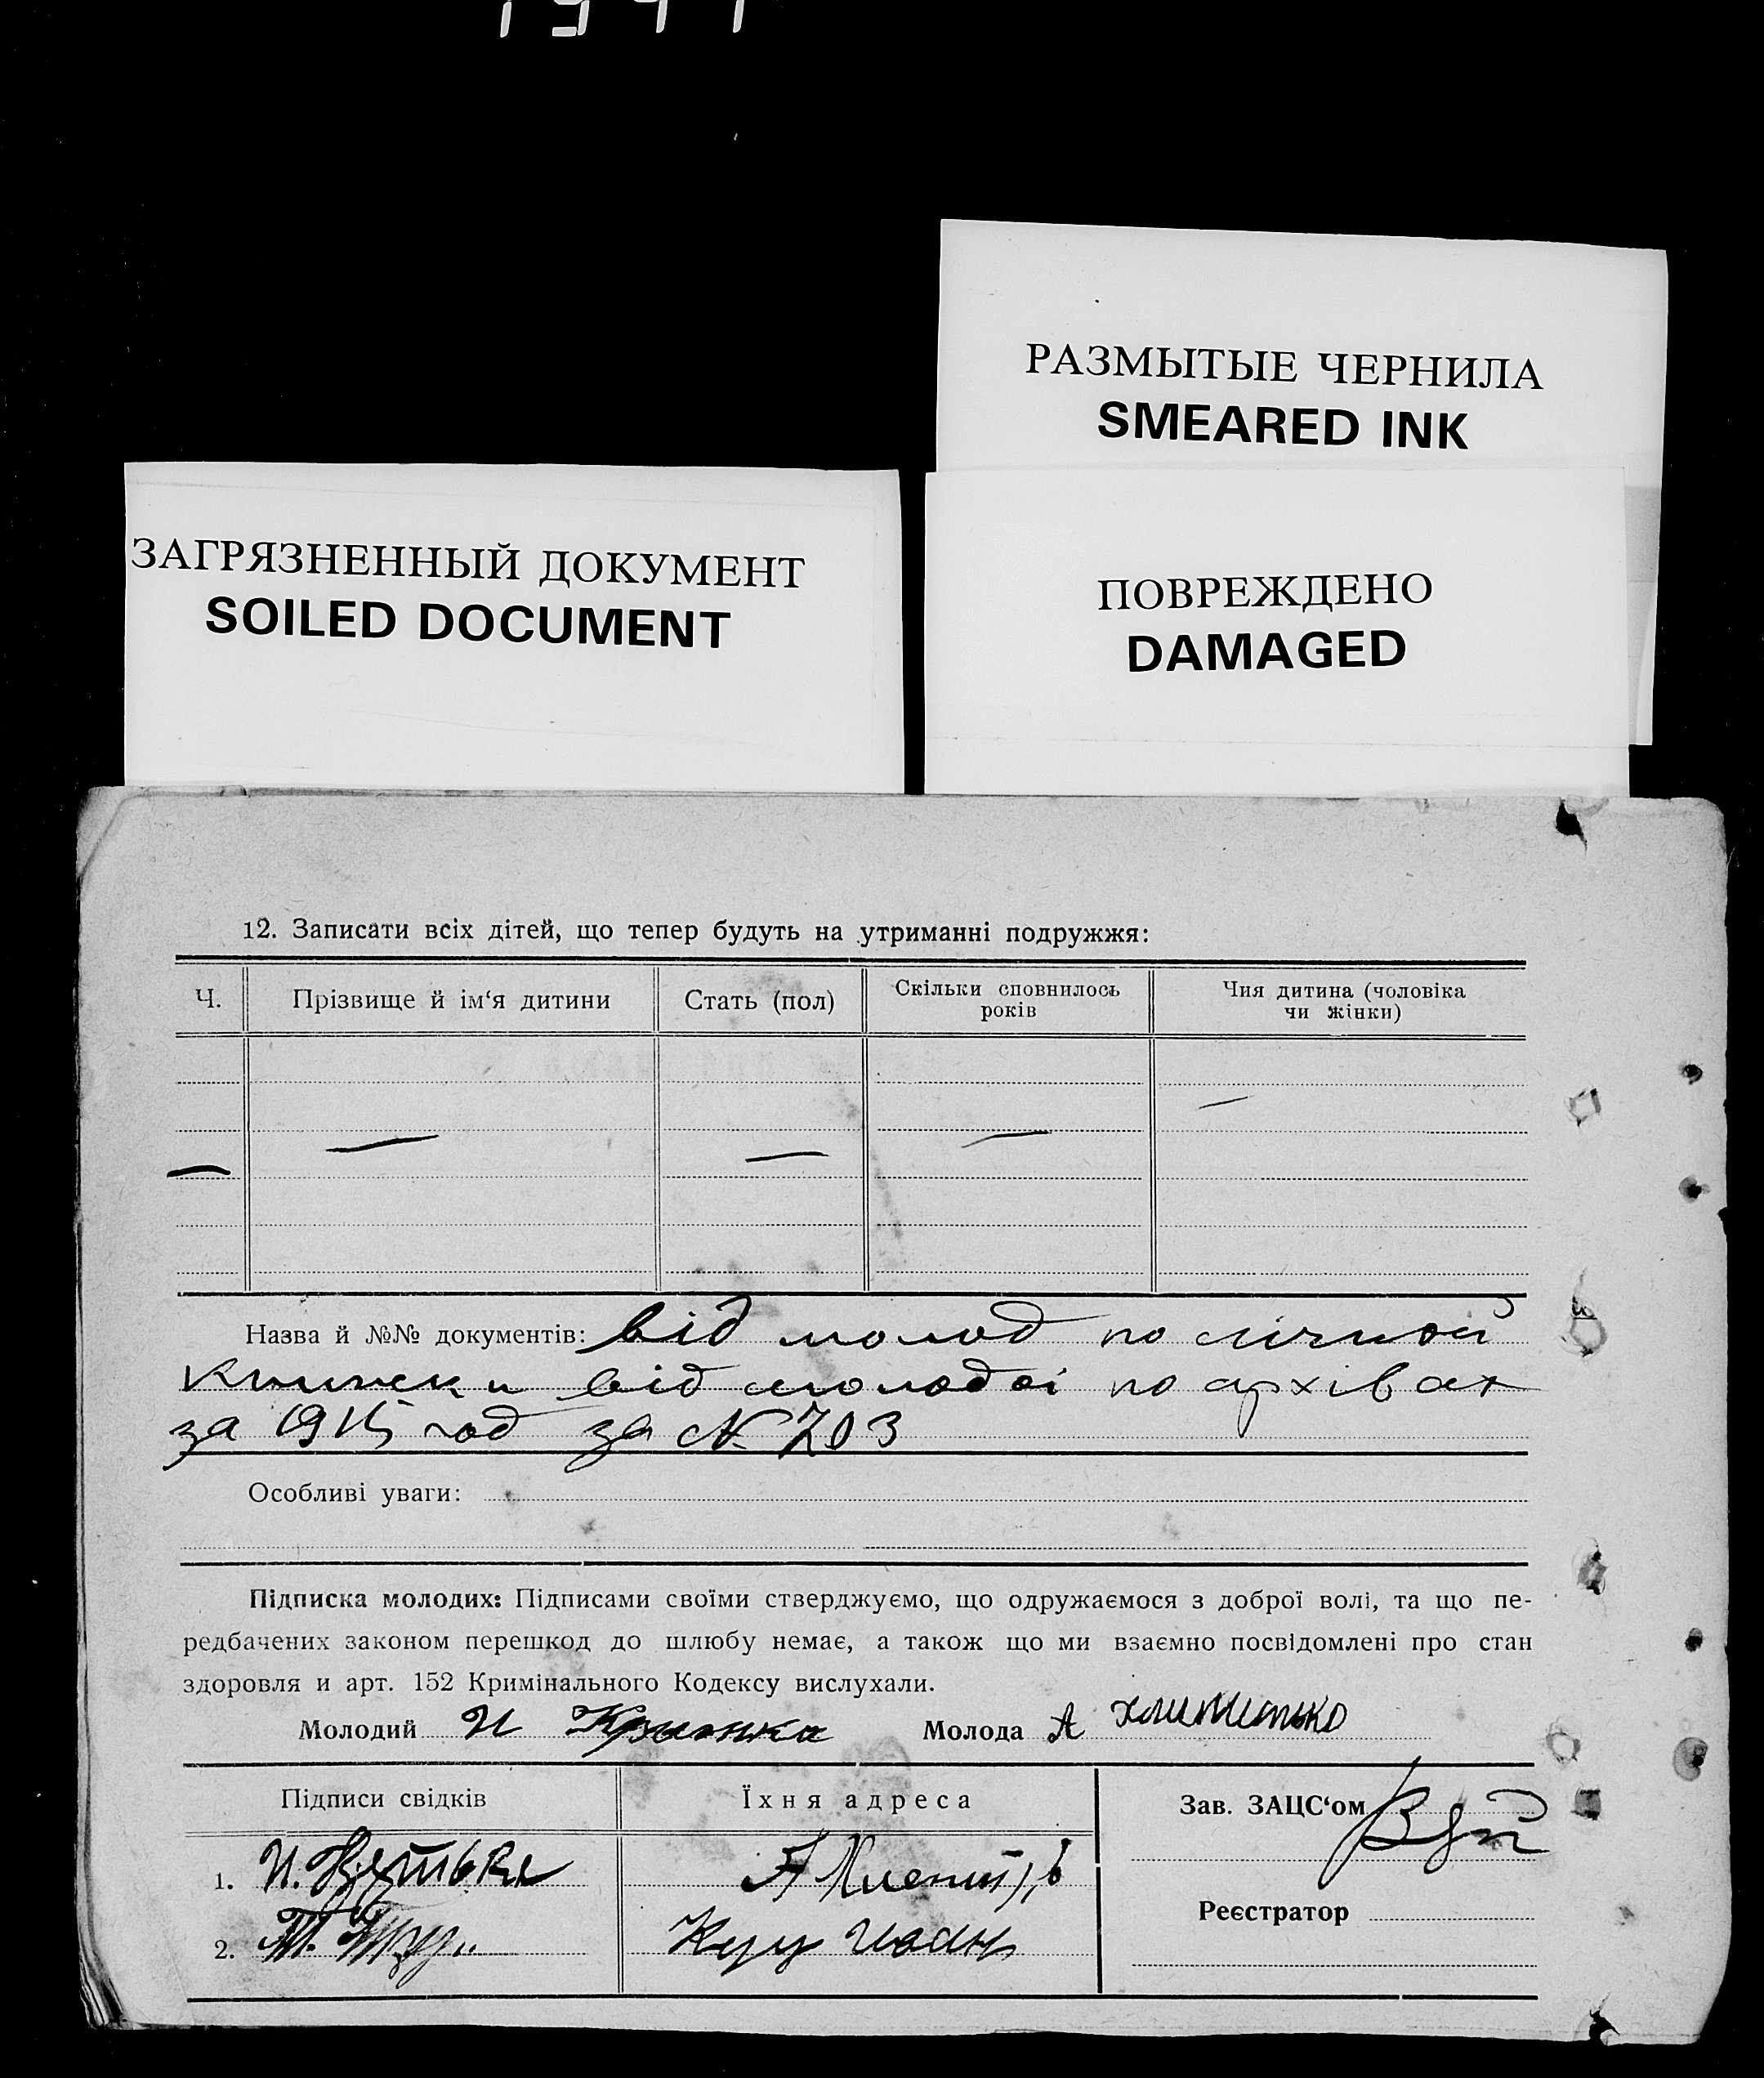 РАЗМЫТЫЕ ЧЕРНИЛА
SMEARED INK
ЗАГРЯЗНЕННЫЙ ДОКУМЕНТ
SOILED DOCUMENT
ПОВРЕЖДЕНО
DAMAGED
12. Записати всіх дітей, що тепер будуть на утриманні подружжя:
Ч. Прізвище й ім‘я дитини Стать (пол) Скільки сповнилось років Чия дитина (чоловіка чи жінки)
— — — — —
Назва й №№ документів: від молод по лічной
книжки від молодоі по архівах
за 1915 год за № 703
Особливі уваги:
Підписка молодих: Підписами своїми стверджуємо, що одружаємося з доброї волі, та що пе-
редбачених законом перешкод до шлюбу немає, а також що ми взаємно посвідомлені про стан
здоровля и арт. 152 Кримінального Кодексу вислухали.
Молодий И Молода А
Підписи свідків Їхня адреса Зав. ЗАЦС‘ом
1. И.
2.
Реєстратор